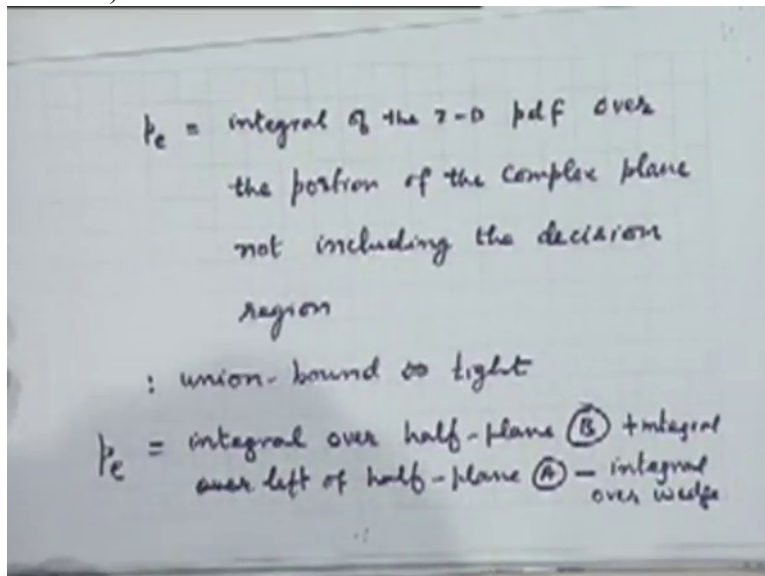 Pe = integral of the 2-D pdf over
the portion of the complex plane
not including the decision
region
: union-bound is tight
Pe = integral over half-plane (B) + integral
over left of half-plane (A) - integral
over wedge